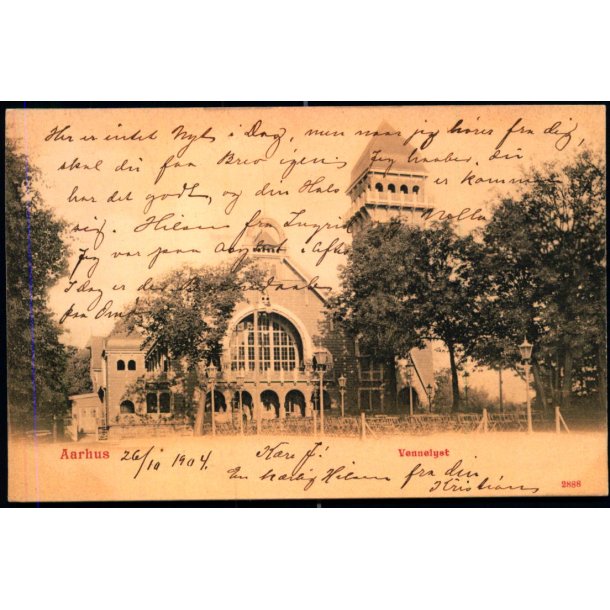 Her er intet Nyt i Dag, men naar jeg hører fra dig,
skal du faa Brev igen. Jeg haaber, du
har det godt, og din Hals er kommen
sig. Hilsen fra Ingrid og
Jeg var paa i Aften
I dag er der
paa
Aarhus 26/10 1904. Kære J! Vennelyst
En kærlig Hilsen fra din
Kristian
2888